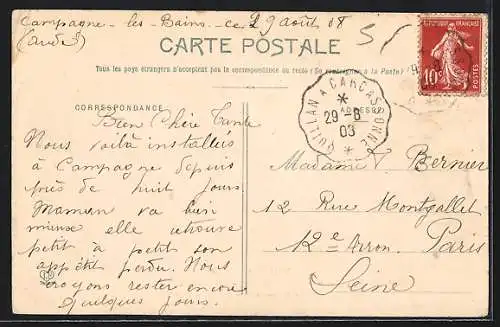 Campagne-les-Bains-ce 29 août 08
(Aude)
CARTE POSTALE
Tous les pays étrangers n'acceptent pas la correspondance au recto (Se renseigner à la Poste)
CORRESPONDANCE
ADRESSE
QUILLAN A CARCASSONNE
29-8
03
10c
POSTES
Bien Chère Tante
Nous voilà installés
à Campagne depuis
près de huit jours.
Maman va bien
mieux elle retrouve
petit à petit son
appétit perdu. Nous
croyons rester encore
quelques jours.
Madame Bernier
12 Rue Montgallet
12e Arron. Paris
Seine